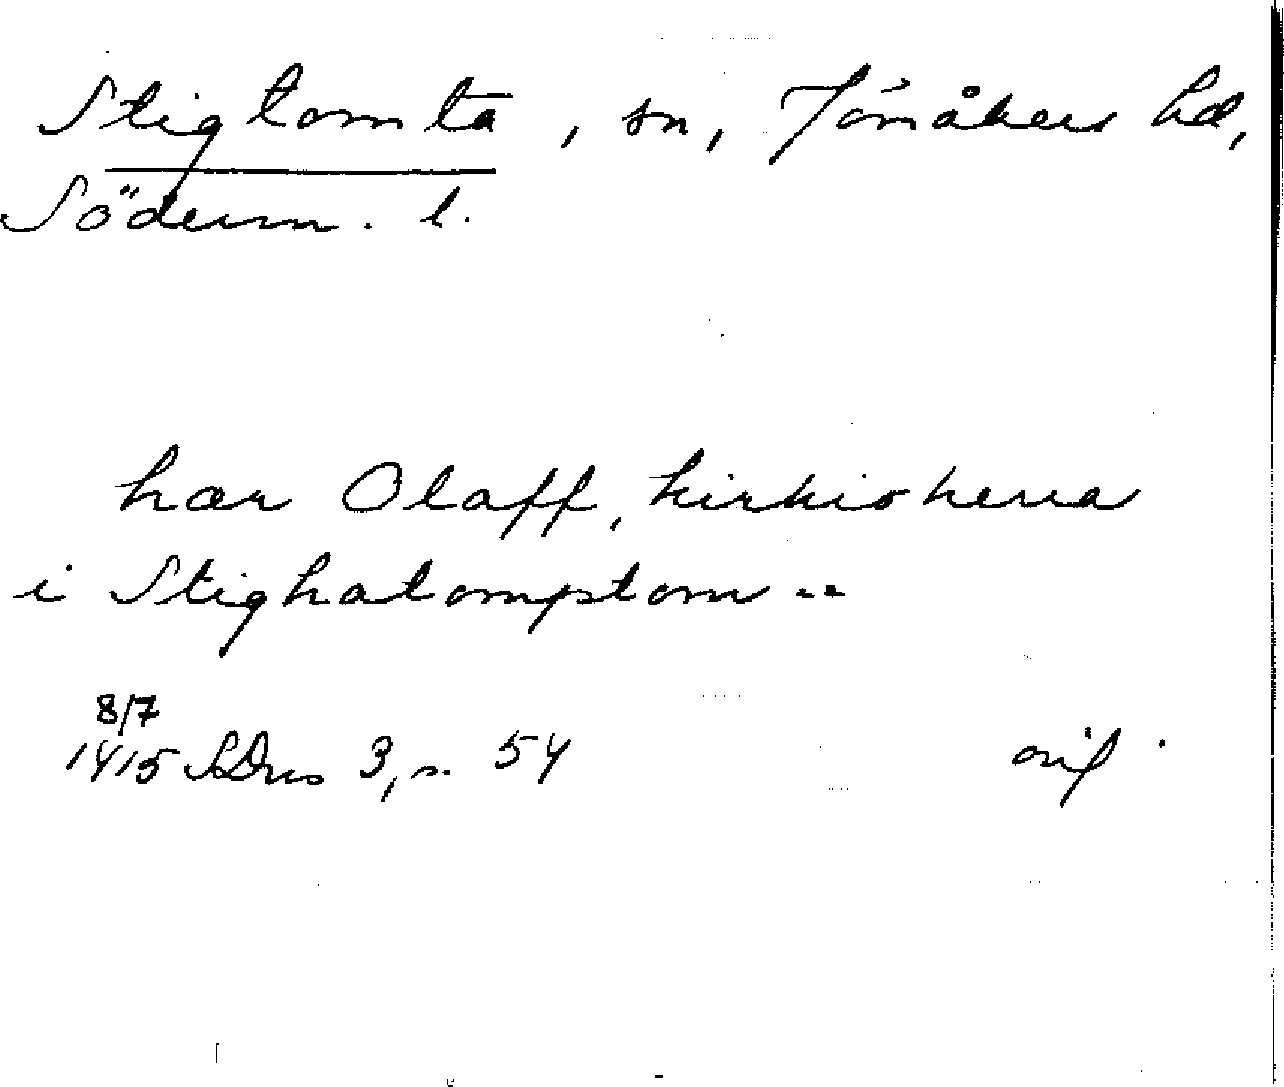 Stigtomta, sn, Jönåkers hd,
Söderm. l.
hær Olaff, kirkioherra
i Stighatomptom --
8/7
1415 SDns 3, s. 54 orig.